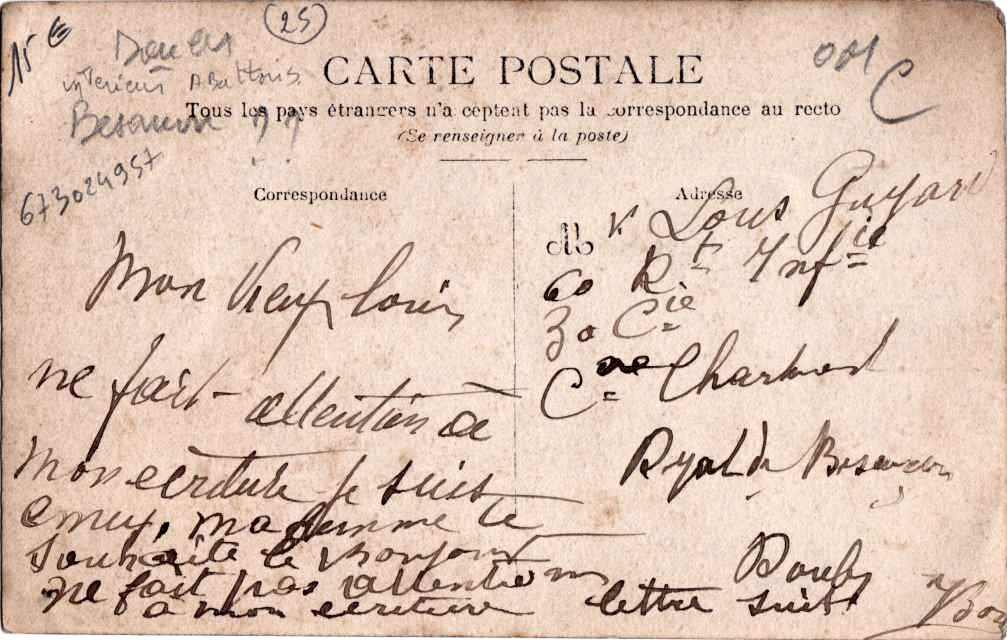 15 €
(25)
Doubs
interieur
Besancon
673024957
CARTE POSTALE
Tous les pays étrangers n'acceptent pas la correspondance au recto
(Se renseigner à la poste)
C
Correspondance
Mon Vieux louis
ne fait attention a
mon ecriture je suis
emu, ma femme te
souhaite le bonjour
ne fait pas attention
a mon ecriture lettre suit
Adresse
Mr Louis Guyard
60 Rt Infie
30 Cie
Cne
Besancon
Doubs